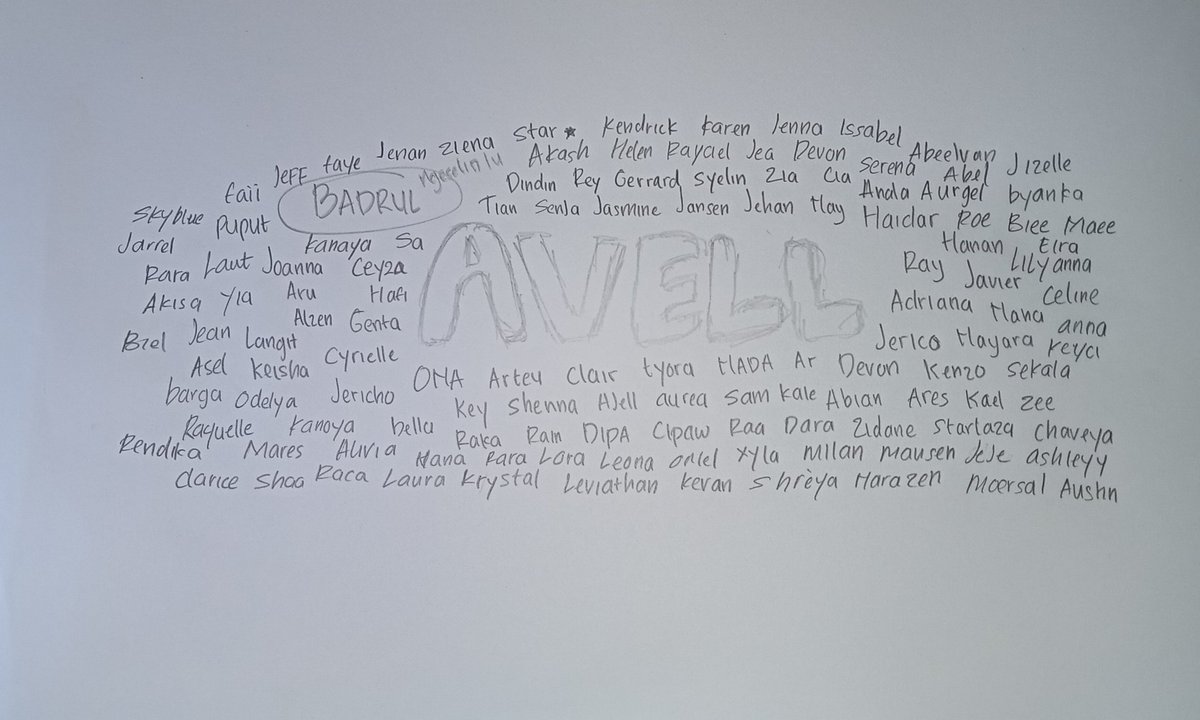 Star★ Kendrick Karen Jenna Issabel
Jeff Faye Jenan Zlena Akash Helen Rayael Jea Devon Serena Abeelvan Jizelle
Faii BADRUL Ngeselin lu Dindin Rey Gerrard Syelin Zia Cia Anda Aurgel Abel byanka
Skyblue Puput Tian Senja Jasmine Jansen Jehan Hay Haidar Roe Biee Maee
Jarrel Kanaya Sa Hanan Eira
Rara Laut Joanna Ceyza Ray Javier Lilyanna
Akisa Yla Aru Hafi Adriana Hana Celine
AVELL
Biel Jean Langit Alzen Genta Jerico Hayara Keyci anna
Asel Keisha Cyrielle ONA Artey Clair tyora HADA Ar Devon Kenzo Sekala
barga Odelya Jericho Key Shenna Ajell aurea Sam Kale Abian Ares Kael Zee
Raquelle Kanoya bella Raka Ram DIPA Cipaw Raa Dara Zidane Starlaza Chaveya
Rendika Mares Alivia Nana Rara Lora Leona Oriel Xyla Milan Mausen JeJe ashleyy
Clarice Shoa Raca Laura Krystal Leviathan Kevan Shreya Harazen Moersal Austin